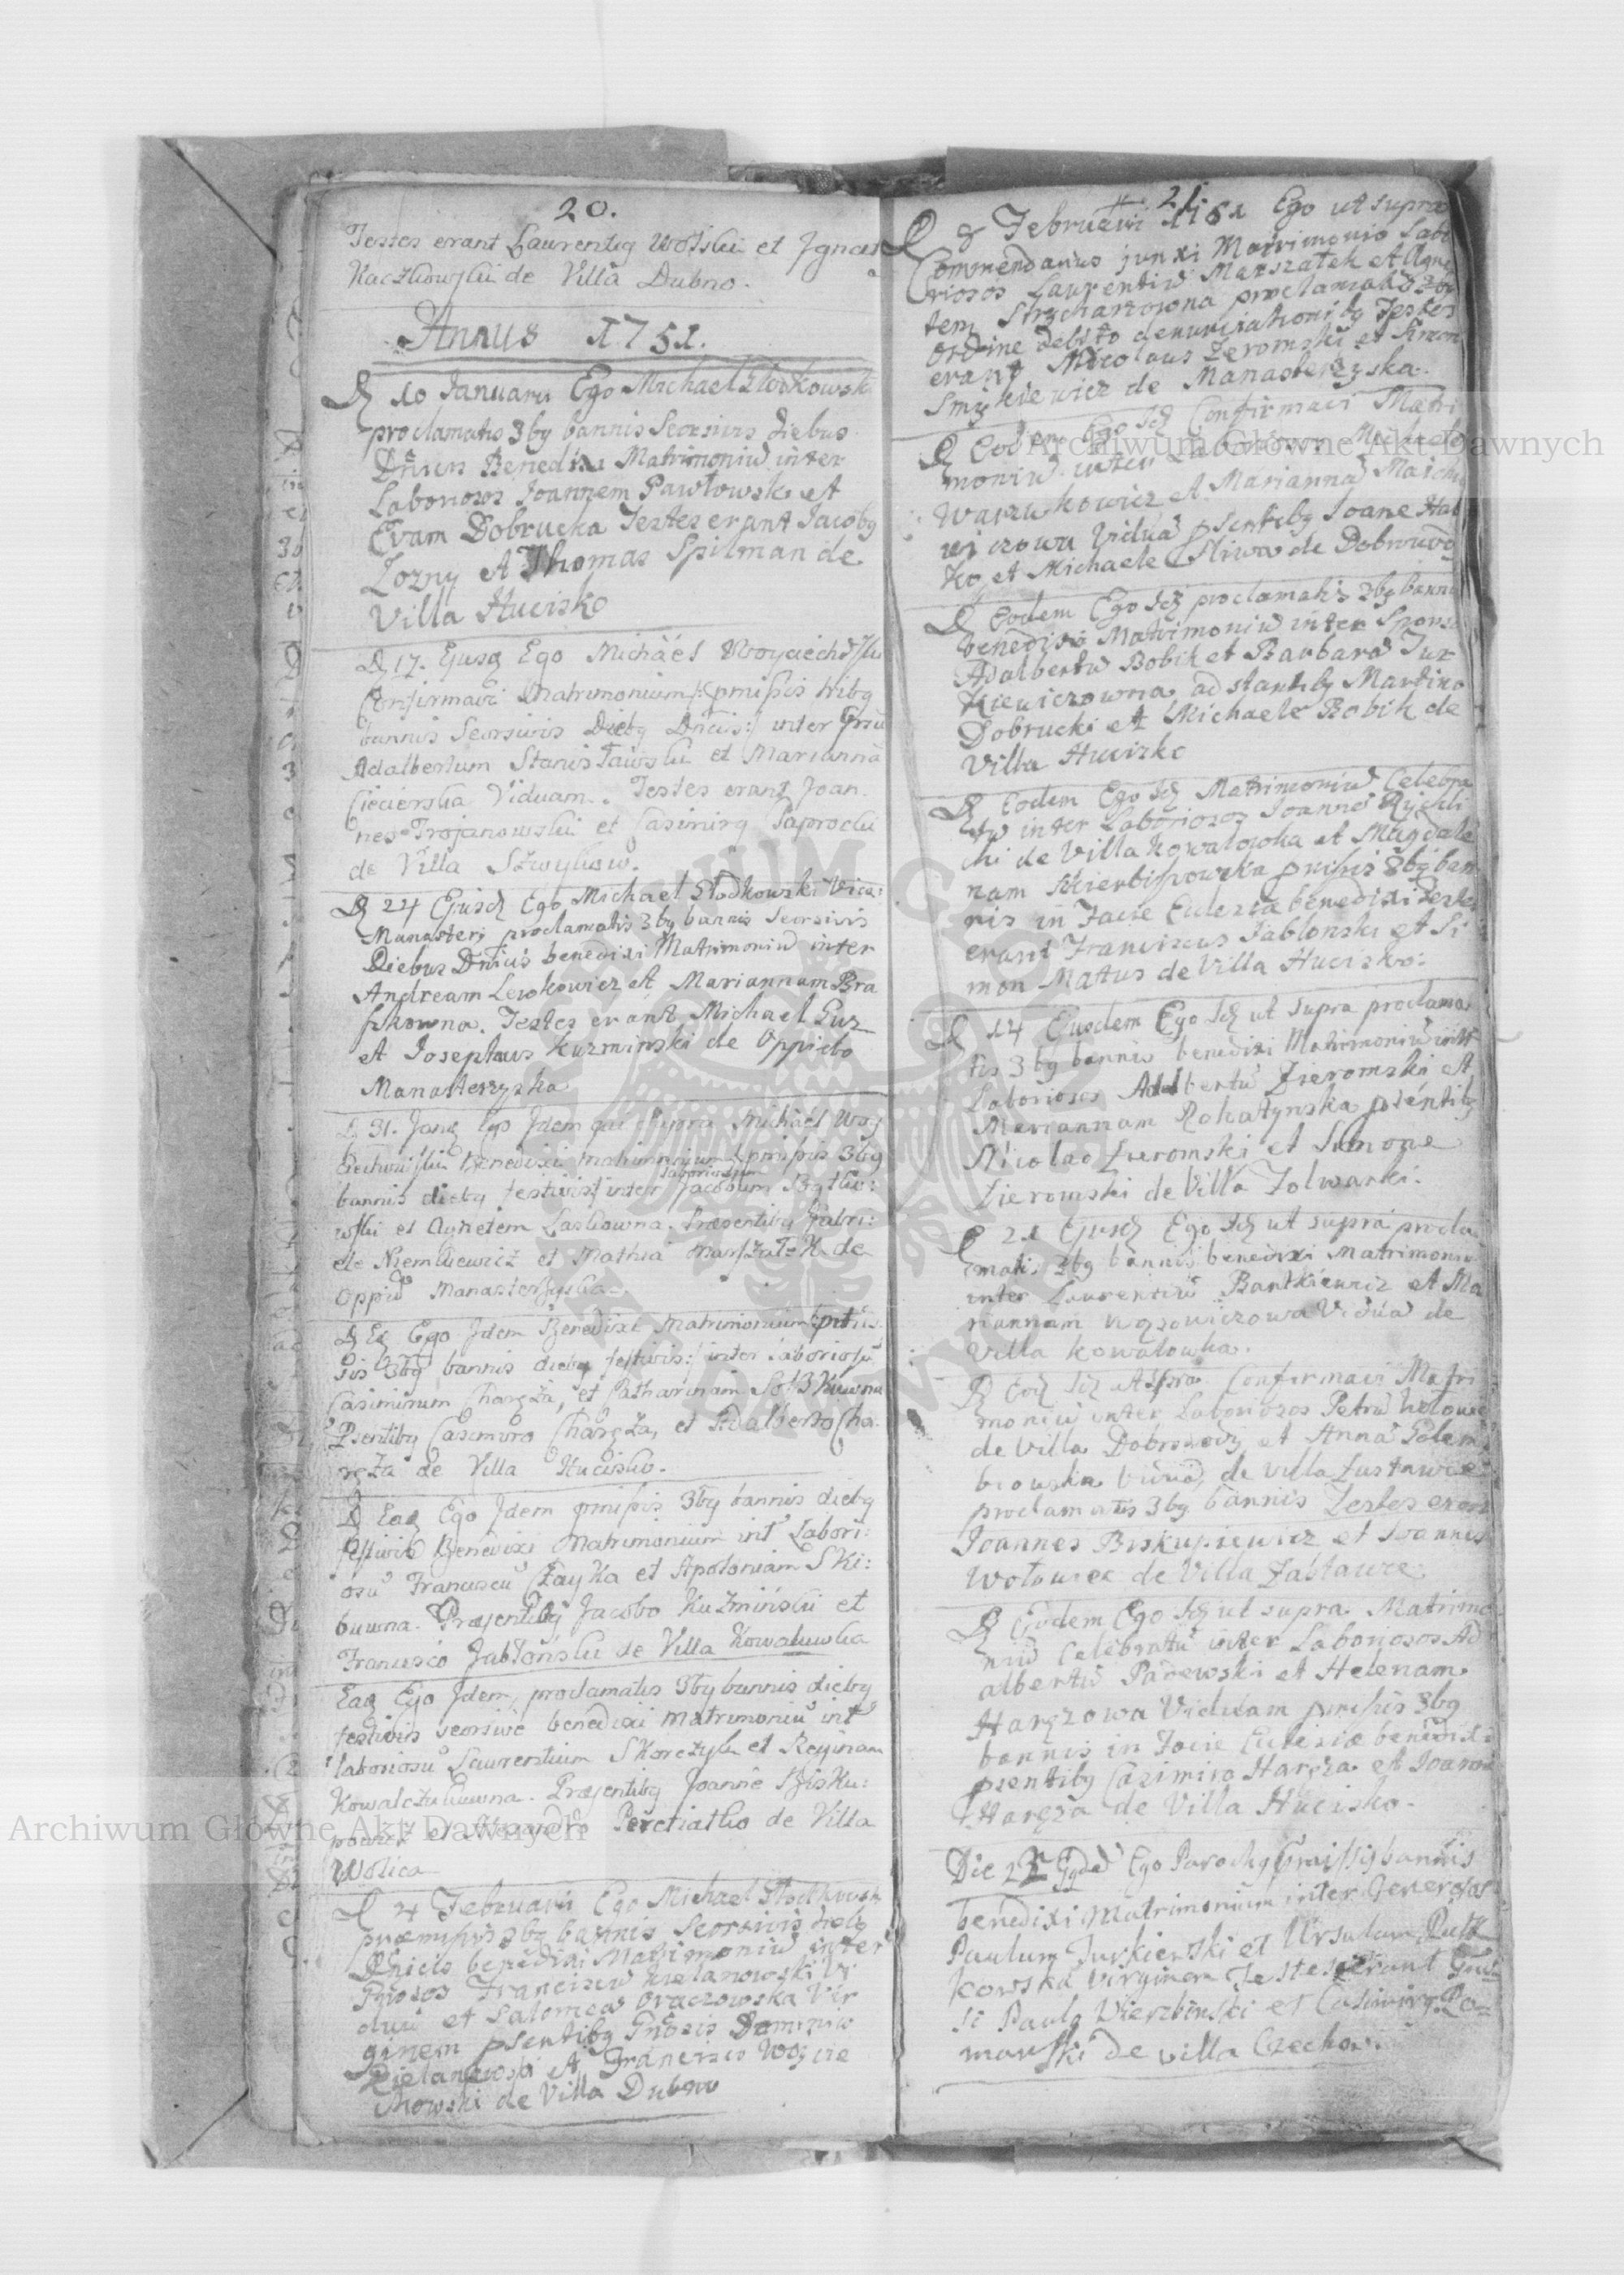 20.
Testes erant Laurentiq Wolski et Jgnat
Kaczkowski de Villa Dubno.
Annus 1751.
D 10 Januarii Ego Michael Słodkowsk
proclamatis 3bq bannis Seorsivis diebus
Dñicis Benedixi Matrimoniũ inter
Laboriosos Joannem Pawłowski et
Evam Dobrucka Testes erant Jacobq
Lozny et Thomas Spilman de
Villa Hucisko
D 17. Ejusq Ego Michaël Woyciechowski
Confirmavi Matrimonium /: pmissis tribq
bannis Seorsivis Diebq Dñicis :/ inter
Adalbertum Stanisławski et Mariannã
Ciecierska Viduam. Testes erant Joan
nes Trojanowski et Casimirq Paprocki
de Villa
D 24 Ejusd Ego Michael Słodkowski Vica:
Manaster: proclamatis 3bq bannis Seorsivis
Diebus Dñicis benedixi Matrimoniũ inter
Andream Lewkowicz et Mariannam Bra
Testes erant Michael Guz
et Josephus Kuzminski de Oppido
Manasterzyska
D 31. Janq Ego Jdem qui Supra Michaël Woy
ciechowski Benedixi matrimonium pmissis 3bq
laboriosum
bannis diebq festivis inter Jacobum Bytko:
wski et Agnetem Laskowna. Præsentibq Gabri:
ele Niemkiewicz et Mathia Marszałek de
Oppid Manasterzyska.
D Eq Ego Jdem Benedixi Matrimonium
sis 3bq bannis diebq festivis :/ inter laboriosũ
Casimirum Charęża, et Catharinam
Psentibq Casimiro Charęża, et Adalberto Cha
ręża de Villa Hucisko.
D Eaq Ego Jdem pmissis 3bq bannis diebq
festivis Benedixi Matrimonium int Labori:
osũ Franciscũ Czayka et Apoloniam Ski:
buwna. Præsentibq Jacobo Kuźmiński et
Francisco Jabłoński de Villa Kowaluwka
Eaq Ego Jdem, proclamatis 3bq bannis diebq
festivis seorsive benedixi matrimoniũ int
laboriosũ Laurentium Skorczyk et Reginam
Kowalczukuwna. Præsentibq Joanne Bisku:
powicz et Alexandro Peretiatko de Villa
Wolica
D 4 Februarii Ego Michael Słodkowsk
præmissis 3bq bannis Seorsivis diebq
Dñicis benedixi Matrimoniũ inter
Gñosos Franciscũ Zielanowski Vi
duũ et Salomeã Oraczowska Vir
ginem psentibq Gñosis Dominico
Zielanowski et Francisco Woycie
chowski de Villa Dubno
21.
D 8 Februarii 1751 Ego ut supra
Commendarius junxi Matrimonio Labo
riosos Laurentiũ Marszałek et Agne
tem Strycharzowna proclamatis 3bq
ordine debito denunciationibq Testes
erant Nicolaus Zeromski et Simon
Smykiewicz de Manasterzyska.
D Eodem Ego Id Confirmavi Matri
moniũ inter Laboriosos Michaele
Warzukowicz et Mariannã Maich
wiczowa Viduã psentibq Joane Hal
ko et Michaele Sliwa de Dobrowod
D Eodem Ego Id proclamatis 3bq banni
benedixi Matrimoniũ inter Spons
Adalbertũ Bobik et Barbarã Jur
kiewiczowna adstantibq Martino
Dobrucki et Michaele Bobik de
Villa Hucisko
D Eodem Ego Id Matrimoniũ Celebra
tũ inter Laboriosos Joannẽ Rychli
cki de Villa Kowalowka et Magdale
nam pmissis 3bq ban
nis in Facie Eclesia benedixi Testes
erant Franciscus Jablonski et Si
mon Matus de Villa Hucisko:
D 14 Ejusdem Ego Id ut supra proclama
tis 3bq bannis benedixi Matrimoniũ int
Laboriosos Adalbertũ Zieromski et
Mariannam Rohatynska psẽntibq
Nicolao Zieromski et Simone
Zieromski de Villa Folwarki.
D 21 Ejusd Ego Id ut supra procla
matis 3bq bannis benedixi Matrimoniũ
inter Laurentiũ Bartkiewicz et Ma
riannam Wąsowiczowa Viduã de
Villa Kowalowka.
D Eod Id ut spra Confirmavi Matri
moniũ inter Laboriosos Petrũ Wołowe
de Villa Dobrowody et Annã Golem
biowska Viduã de Villa Zastawce
proclamatis 3bq bannis Testes erant
Joannes Biskupiewicz et Joannes
Wołowiec de Villa Zastawce
D Eodem Ego Id ut supra Matrimo
niũ Celebratũ inter Laboriosos Ad
albertũ Padewski et Helenam
Haręzowa Viduam pmissis 3bq
bannis in Facie Eclesiæ benedixi
psentibq Casimiro Haręza et Joanne
Haręza de Villa Hucisko.
Die 22 Ego Parochq præmissis bannis
benedixi Matrimonium inter Generosos
Paulum Jurkiewski et Ursulam Rutt
kowska Virginem Testes erant Gñro
si Paulq Wierzbinski et Casimirq Ro-
mański de villa Czechow.
Archiwum Główne Akt Dawnych
Archiwum Główne Akt Dawnych